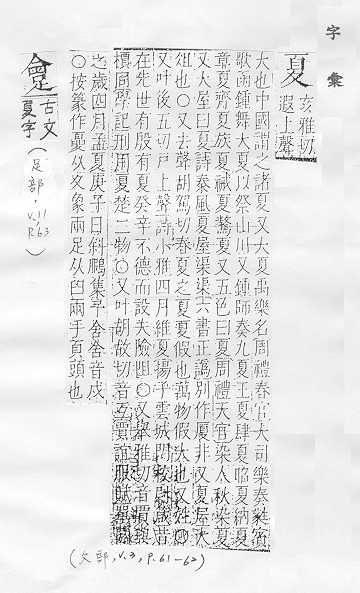 字彙
夏 亥雅切遐上聲
大也中國謂之諸夏又大夏禹樂名周禮春官大司樂奏蕤賓
歌函鍾舞大夏以祭山川又鍾師奏九夏王夏肆夏昭夏納夏
章夏齊夏族夏祴夏驁夏又五色曰夏周禮天官染人秋染夏
又大屋曰夏詩秦風夏屋渠渠六書正譌別作厦非又夏屋大
俎也○又去聲胡駕切春夏之夏夏假也萬物假大也又姓○
又叶後五切戸上聲詩小雅四月維夏揚子雲城門校尉箴昔
在先世有殷有夏癸辛不德而設夫險阻○又舉雅切音檟與
檟同學記夏楚二物○又叶胡故切音互賈誼服賦單閼
之歲四月孟夏庚子日斜鵩集予舍舍音戍
○按篆作从夊象兩足从臼兩手頁頭也
古文夏字
(足部, v.11, p.63)
(夊部, v.3, p.61-62)